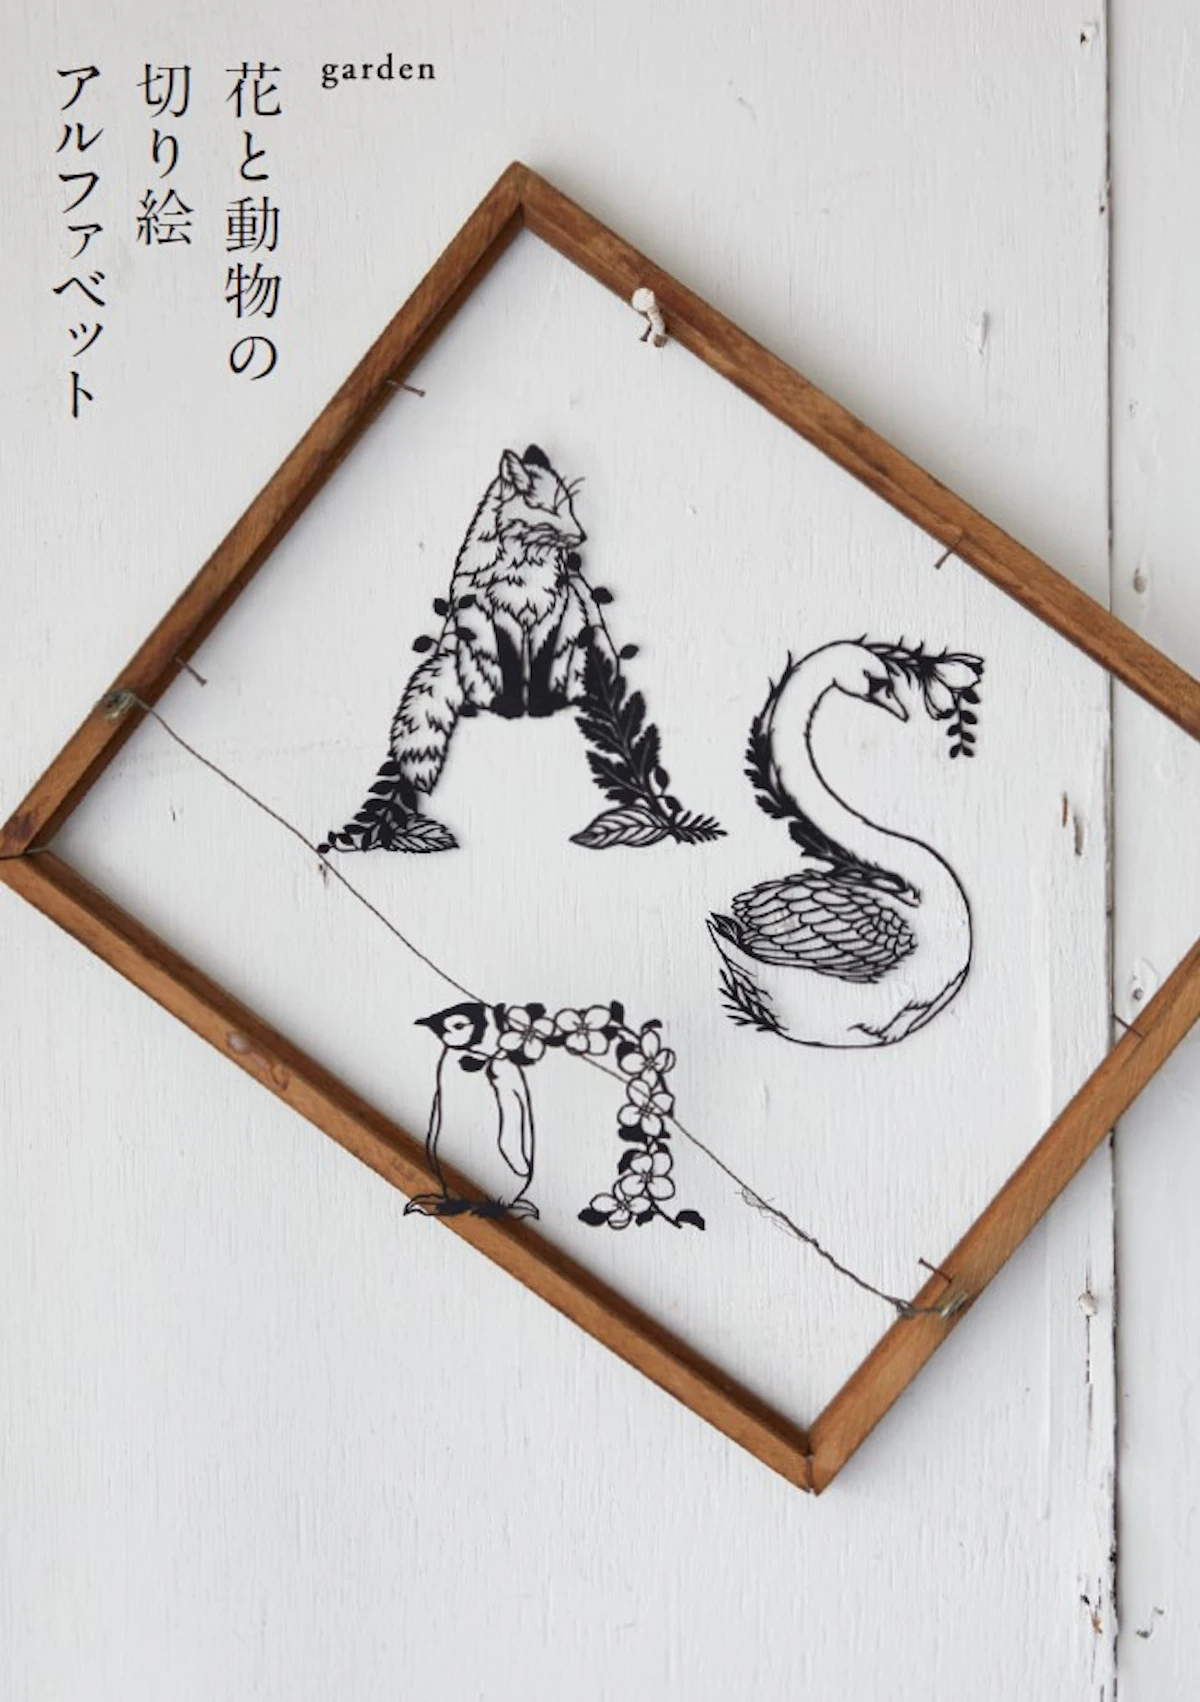 花と動物の
切り絵
アルファベット
garden